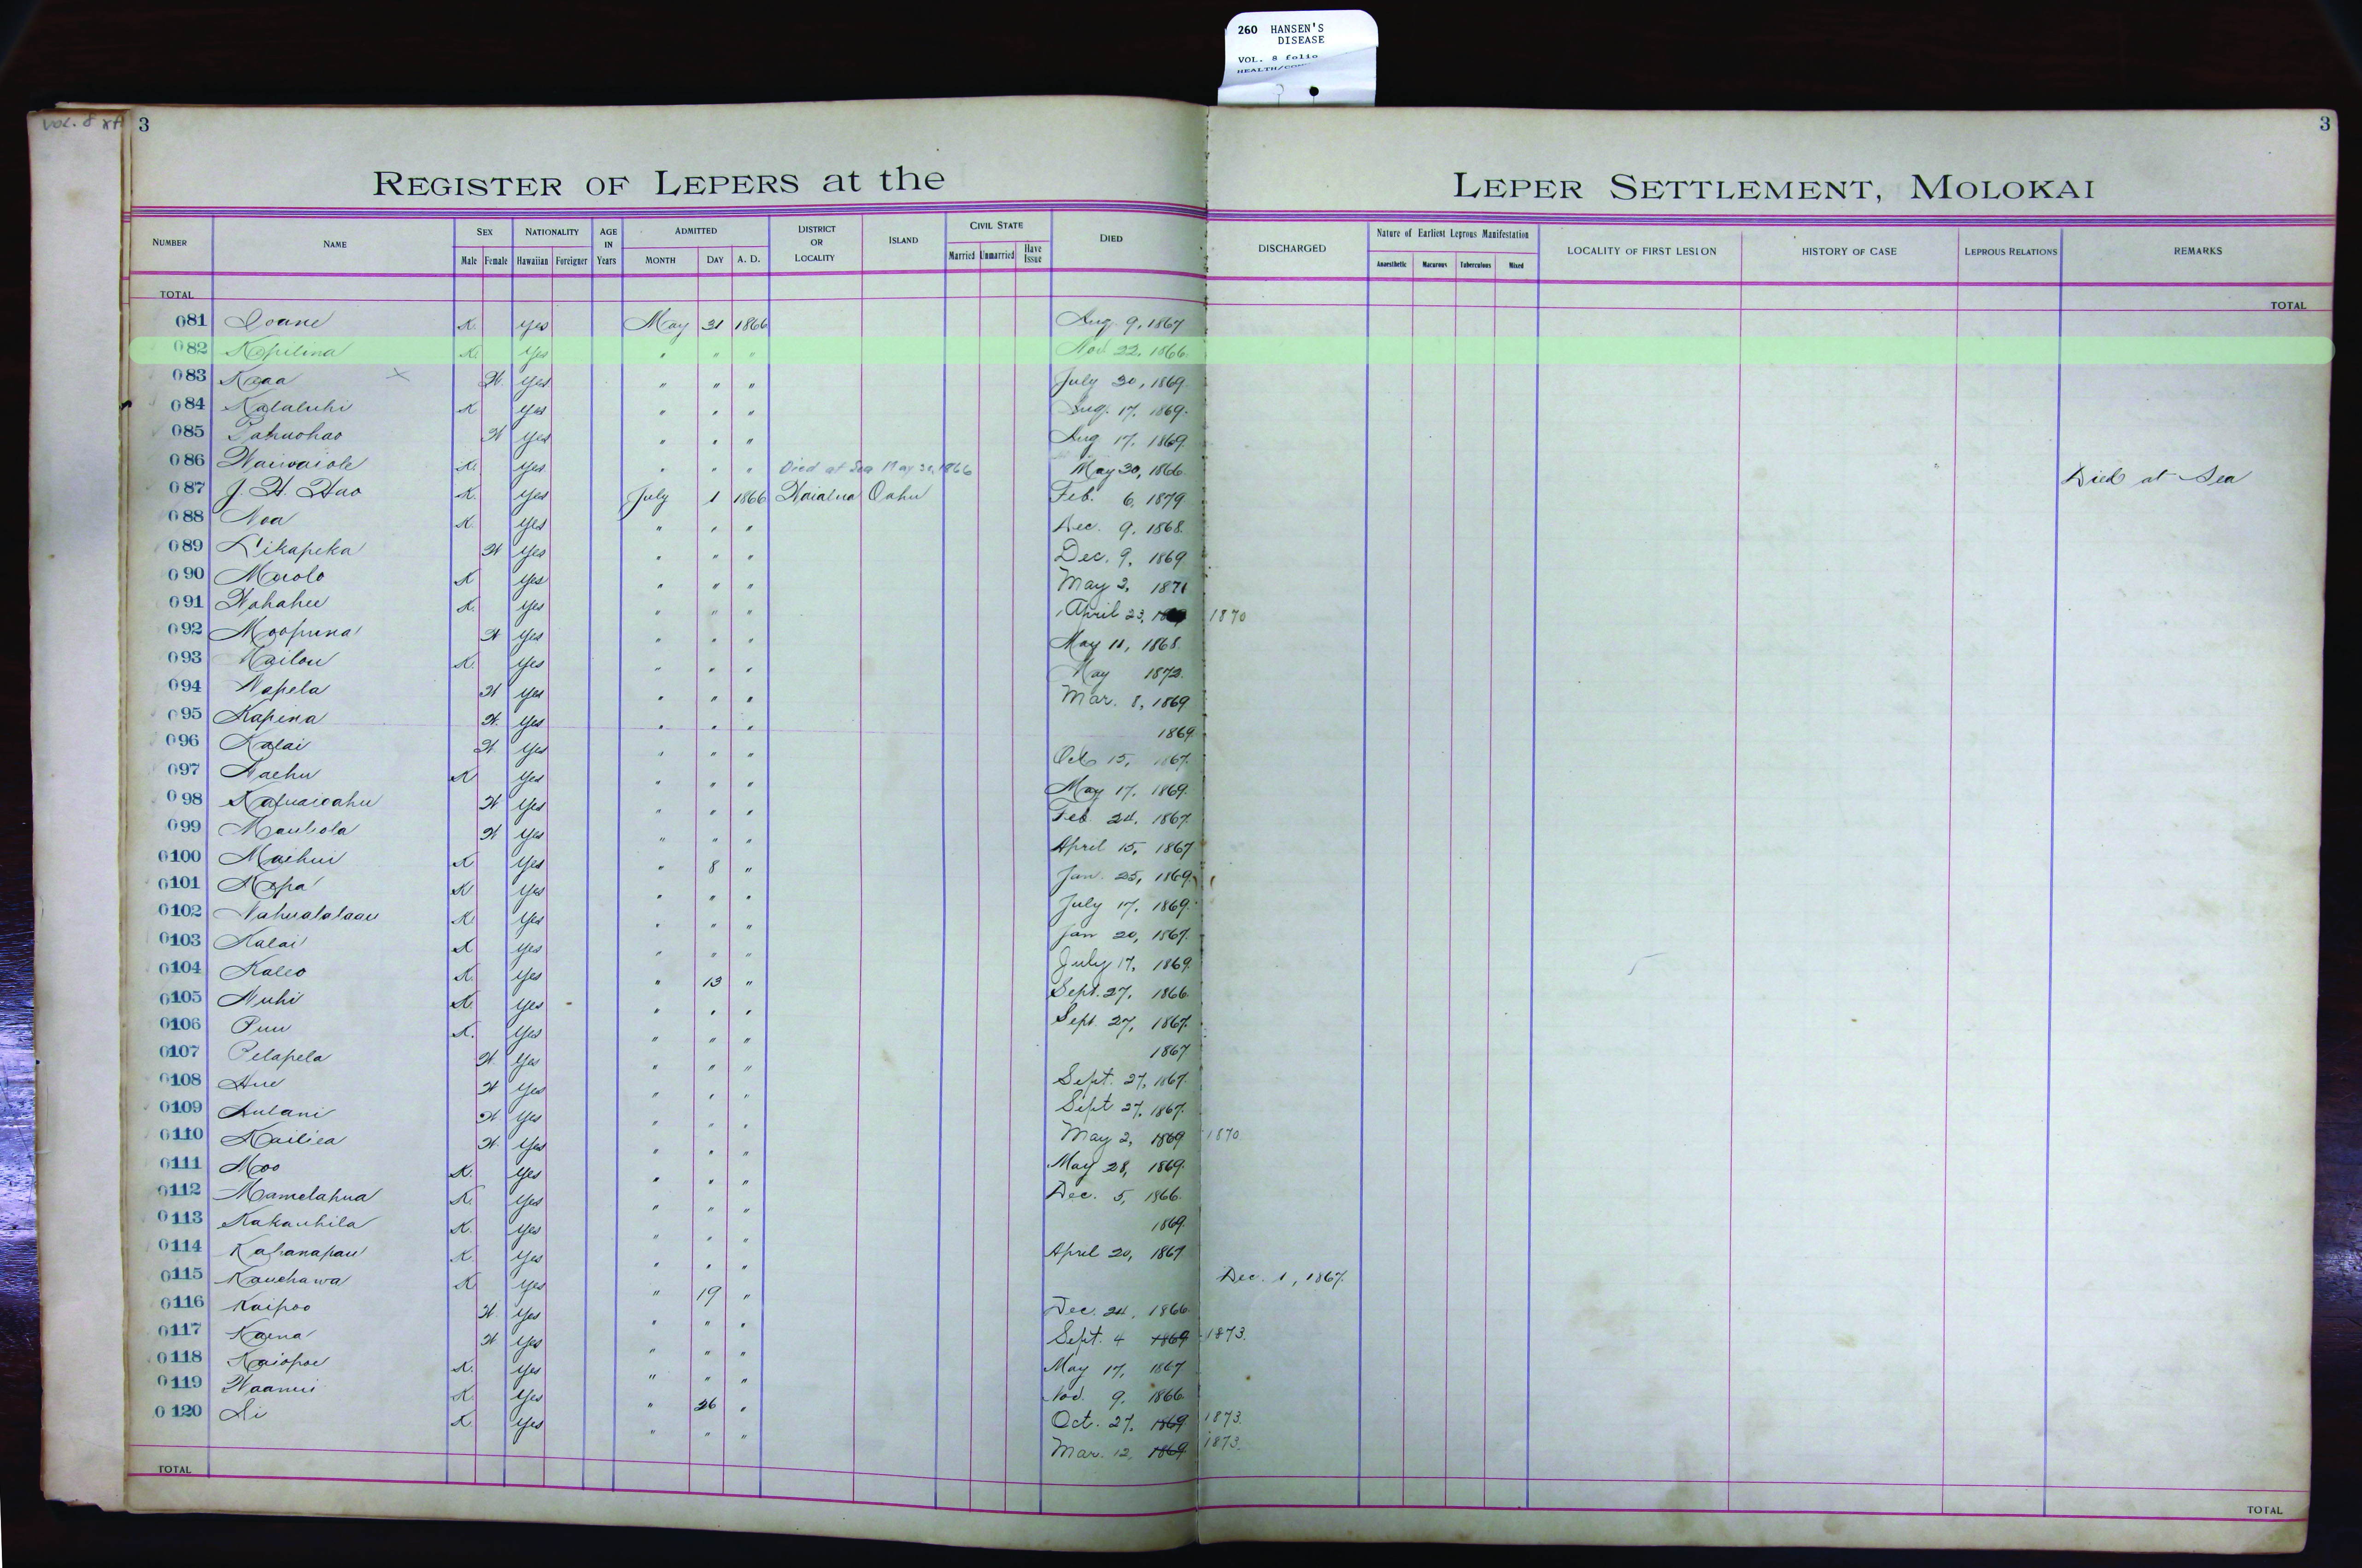 260 HANSEN'S
DISEASE
VOL. 8 folio
VOL. 8
3
3
REGISTER OF LEPERS at the LEPER SETTLEMENT, MOLOKAI
NUMBER NAME SEX Male Female NATIONALITY Hawaiian Foreigner AGE IN Years ADMITTED MONTH DAY A. D. DISTRICT OR LOCALITY ISLAND CIVIL STATE Married Unmarried Have Issue DIED DISCHARGED Nature of Earliest Leprous Manifestation Anaesthetic Macurous Tuberculous Mixed LOCALITY OF FIRST LESION HISTORY OF CASE LEPROUS RELATIONS REMARKS
TOTAL TOTAL
081 Ioane K. yes May 31 1866 Aug. 9, 1867
082 Kepilina K. Yes " " " Nov. 22, 1866.
083 Kaaa W. Yes " " " July 30, 1869.
084 K yes " " " Aug. 17, 1869.
085 Pahuohao W Yes " " " Aug 17, 1869.
086 Waiwaiole K. Yes " " " Died at Sea May 30, 1866 May 30, 1866. Died at Sea
087 J. H. Hao K. Yes July 1 1866 Waialua Oahu Feb. 6, 1879
088 Noa K. Yes " " " Dec. 9, 1868.
089 Likapeka W Yes " " " Dec. 9, 1869
090 K Yes " " " May 2, 1871
091 Wahahee K. Yes " " " April 23, 1870
092 Moopuna W Yes " " " May 11, 1868.
093 Kailou K. Yes " " " May 1872.
094 Napela W Yes " " " Mar. 8, 1869
095 Kapina W. Yes " " " 1869.
096 Kalai W Yes " " " Oct 15, 1867.
097 Naehu K Yes " " " May 17, 1869.
098 W Yes " " " Feb. 24, 1867.
099 W Yes " " " April 15, 1867
0100 Maihui K Yes " 8 " Jan. 25, 1869.
0101 Mopa K Yes " " " July 17, 1869.
0102 Nahualalaau K. Yes " " " Jan 20, 1867.
0103 Kalai K Yes " " " July 17, 1869.
0104 Kaleo K. Yes " 13 " Sept. 27, 1866.
0105 Nuhi K. Yes " " " Sept. 27, 1867.
0106 Puu K. Yes " " " 1867
0107 Pelapela W Yes " " " Sept. 27, 1867.
0108 Hue W Yes " " " Sept 27, 1867.
0109 W Yes " " " May 2, 1869 1870.
0110 Kailiea W. Yes " " " May 28, 1869.
0111 Moo K. Yes " " " Dec. 5, 1866.
0112 Mamelahua K. Yes " " " 1869.
0113 Kakauhila K. Yes " " " April 20, 1867
0114 Kahanapau K. Yes " " " Dec. 1, 1867.
0115 Kauehawa K. Yes " 19 " Dec. 24, 1866.
0116 Kaipoo W. Yes " " " Sept. 4 1869 1873.
0117 Kaena W Yes " " " May 17, 1867
0118 Kaiopoe K. Yes " " " Nov. 9, 1866.
0119 Waanui K. Yes " 26 " Oct. 27, 1869 1873.
0120 K. Yes " " " Mar. 12, 1869 1873.
TOTAL TOTAL